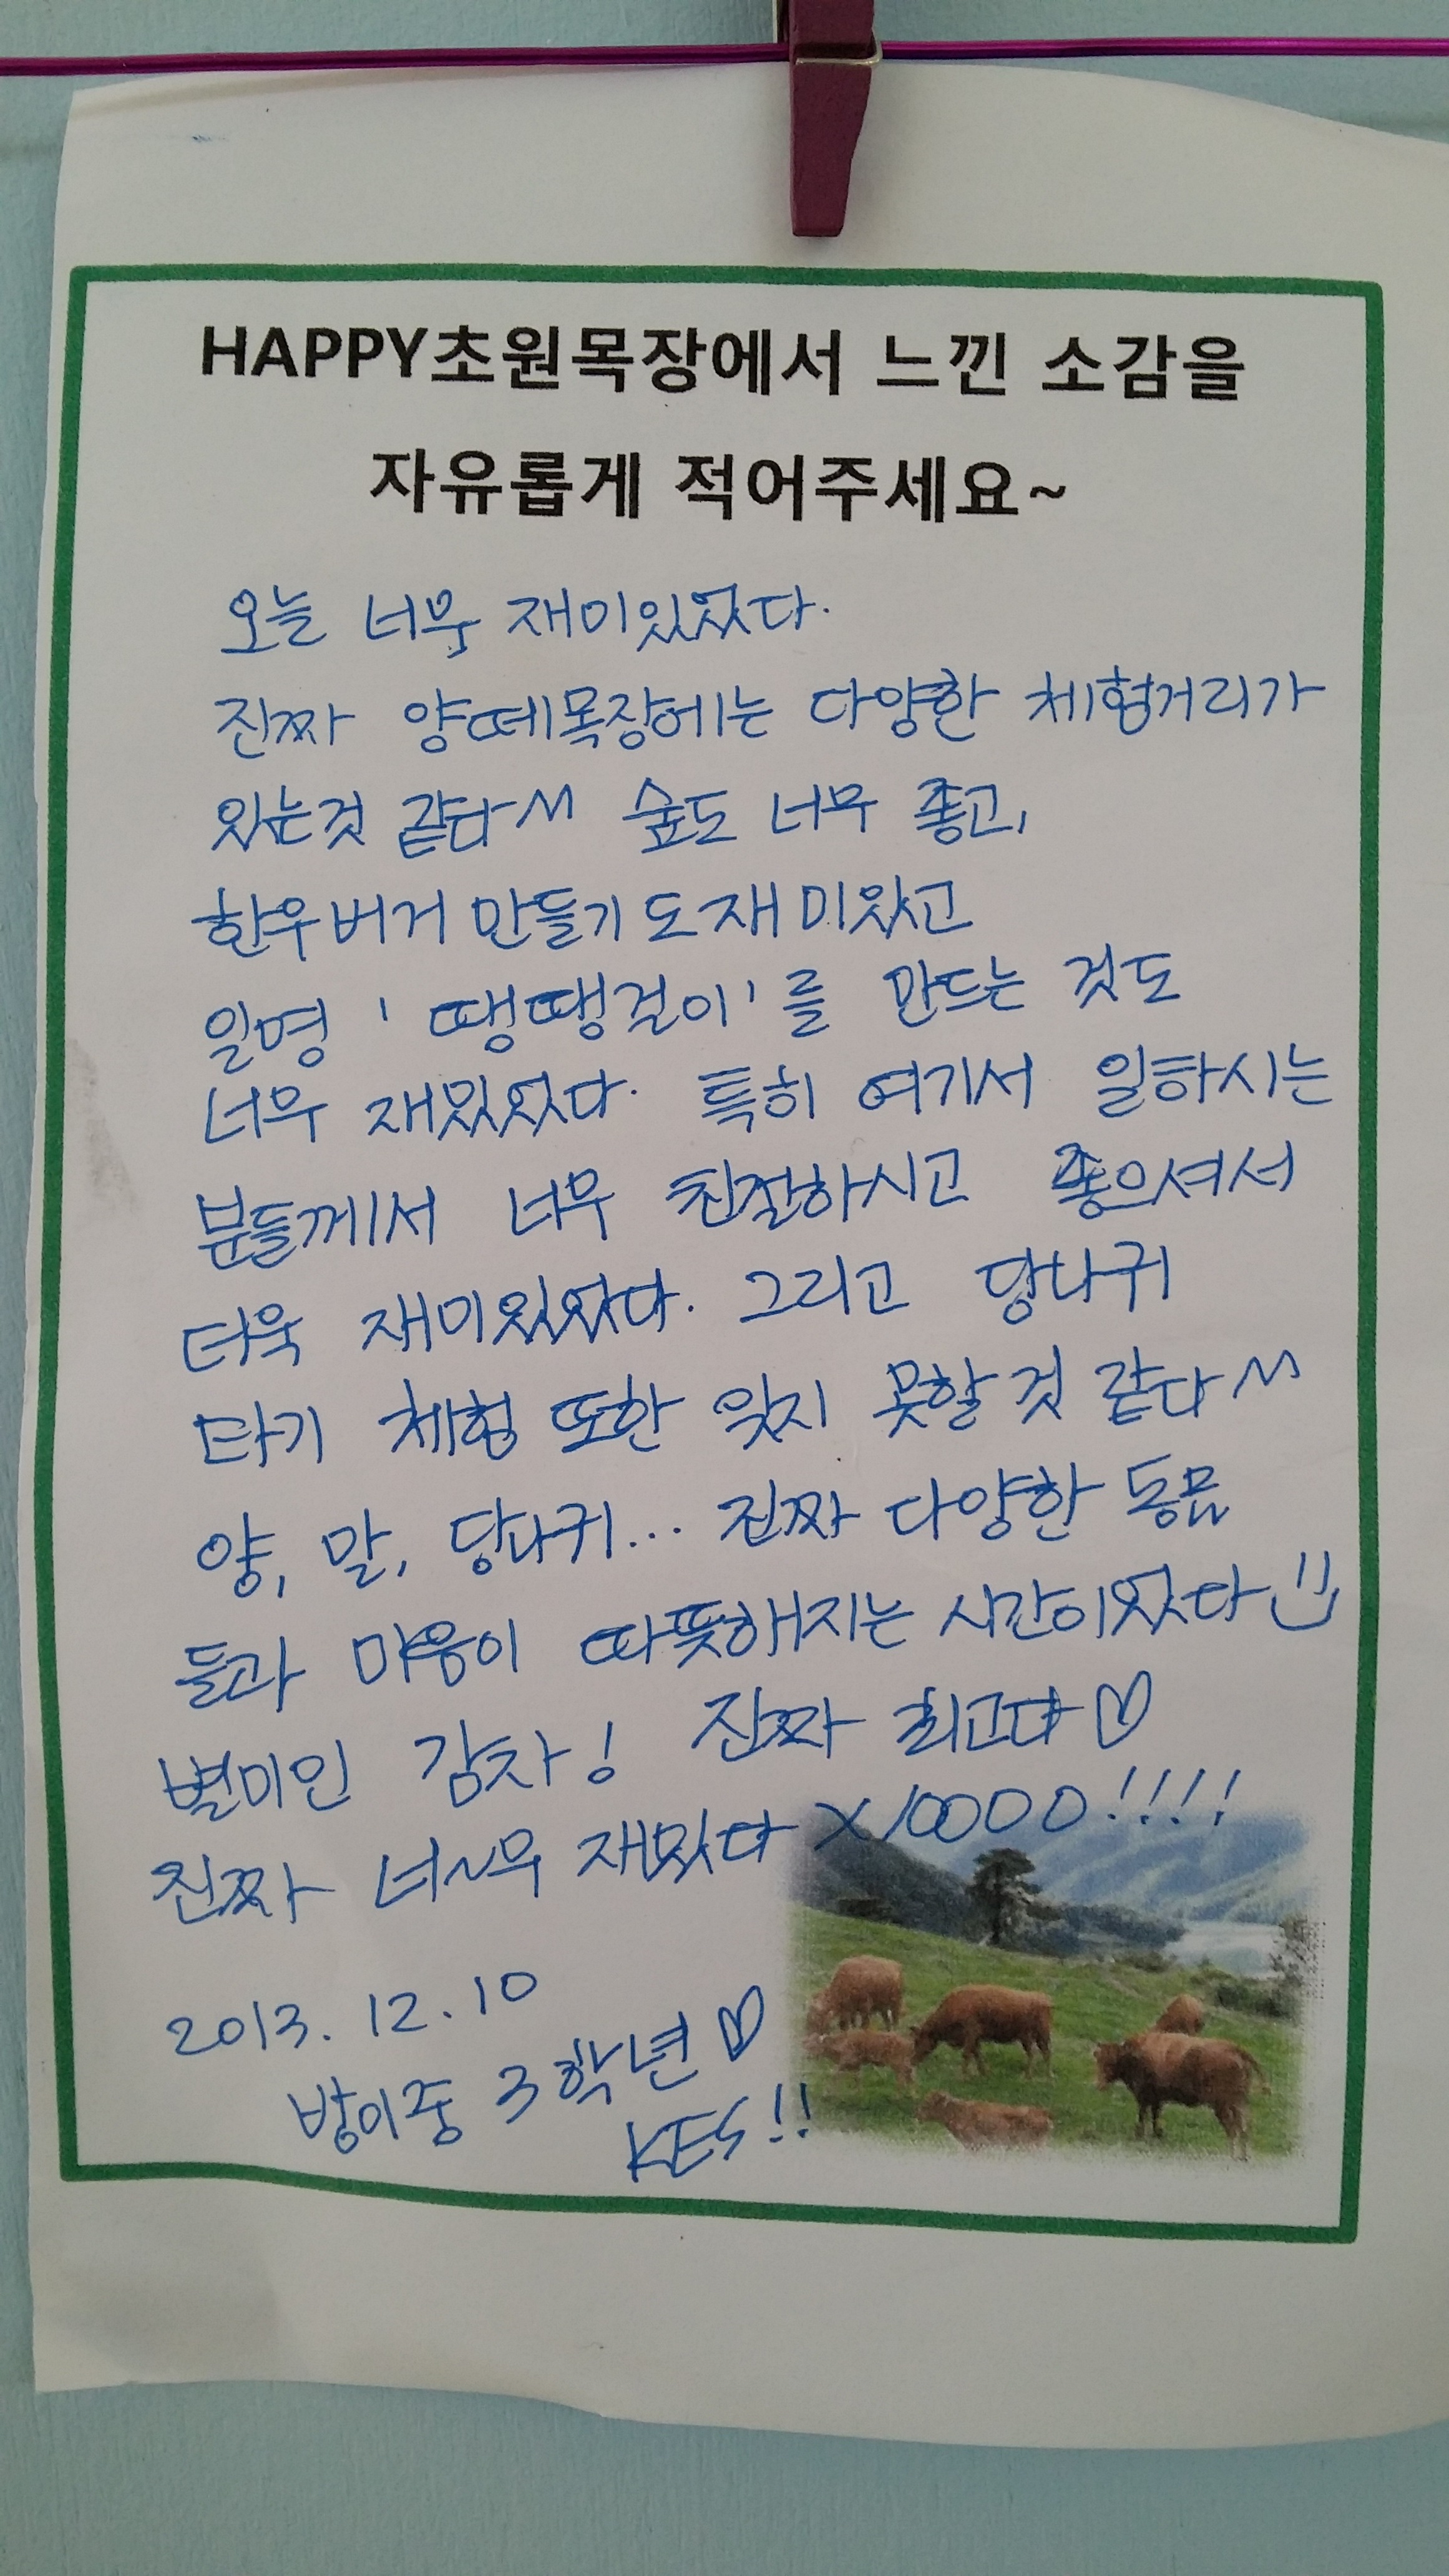 HAPPY초원목장에서 느낀 소감을
자유롭게 적어주세요~
오늘 너무 재미있었다.
진짜 양떼목장에는 다양한 체험거리가
있는것 같다^^ 숲도 너무 좋고,
한우버거 만들기도 재미있고
일명 '땡땡걸이'를 만드는 것도
너무 재밌었다. 특히 여기서 일하시는
분들께서 너무 친절하시고 좋으셔서
더욱 재미있었다. 그리고 당나귀
타기 체험 또한 잊지 못할 것 같다^^
양, 말, 당나귀... 진짜 다양한 동물
들과 마음이 따뜻해지는 시간이었다
별미인 감자! 진짜 최고다♡
진짜 너~무 재밌다 X10000!!!!
2013. 12. 10
방이중 3학년♡
KES!!